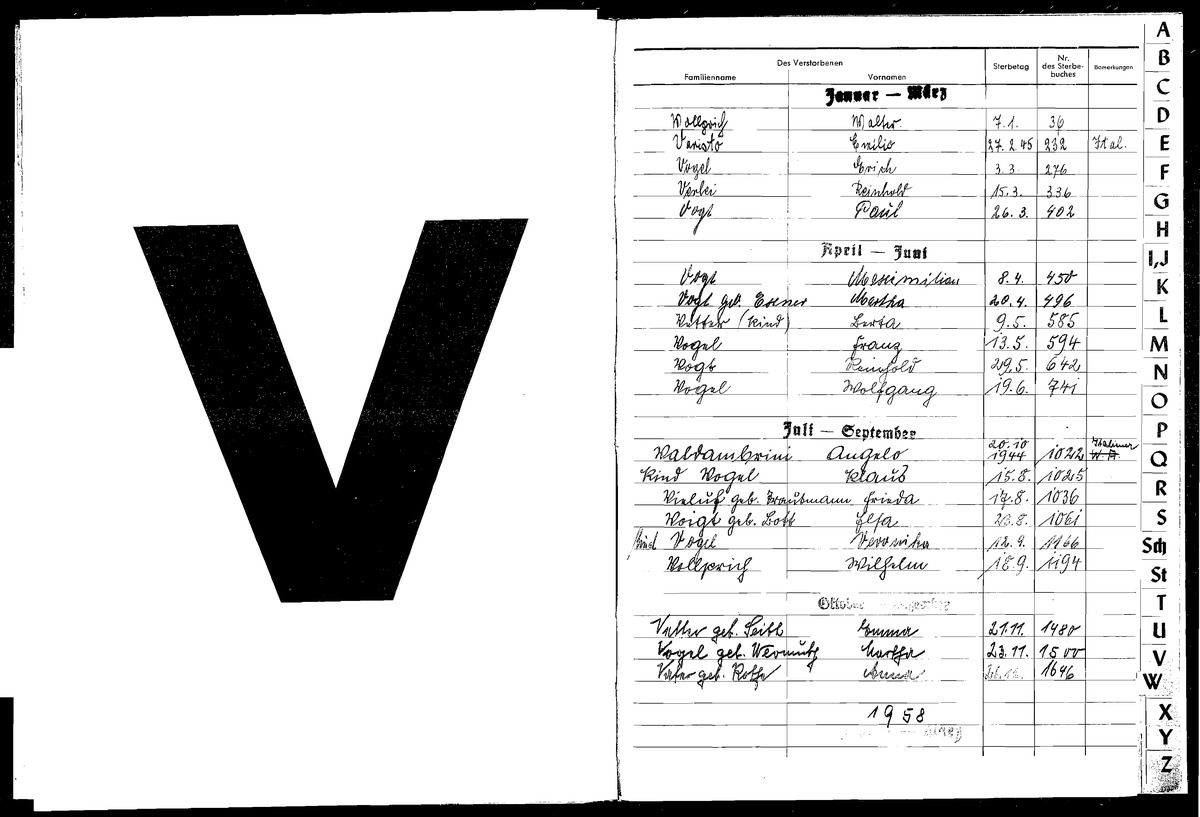 V
Des Verstorbenen
Familienname Vornamen Sterbetag Nr. des Sterbe-buches Bemerkungen
Januar — März
Vollprich Walter. 7.1. 36
Varisto Emilio 27.2.45 232 Ital.
Vogel Erich 3.3. 276
Verbei Reinhold 15.3. 336
Vogt Paul 26.3. 402
April — Juni
Vogt Maximilian 8.4. 450
Vogt geb. Exner Martha 20.4. 496
Vetter (Kind) Berta 9.5. 585
Vogel Franz 13.5. 594
Vogt Reinhold 29.5. 642
Vogel Wolfgang 19.6. 741
Juli — September
Valdambrini Angelo 20.10 1944 1022 Italiener
Kind Vogel Klaus 15.8. 1025
Vieluf geb. Trautmann Frieda 17.8. 1036
Voigt geb. Bott Elsa 23.8. 1061
Kind Vogel Veronika 12.9. 1166
Vollprich Wilhelm 18.9. 1194
Oktober
Vetter geb. Seibt Emma 21.11. 1480
Vogel geb. Wermuth Martha 23.11. 1500
Vater geb. Rothe Anna 1646
1958
A
B
C
D
E
F
G
H
I,J
K
L
M
N
O
P
Q
R
S
Sch
St
T
U
V
W
X
Y
Z